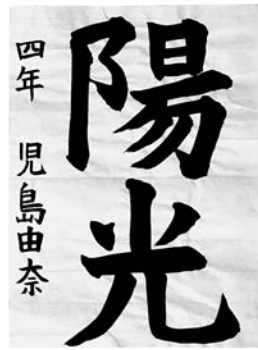 陽光
四年 児島由奈